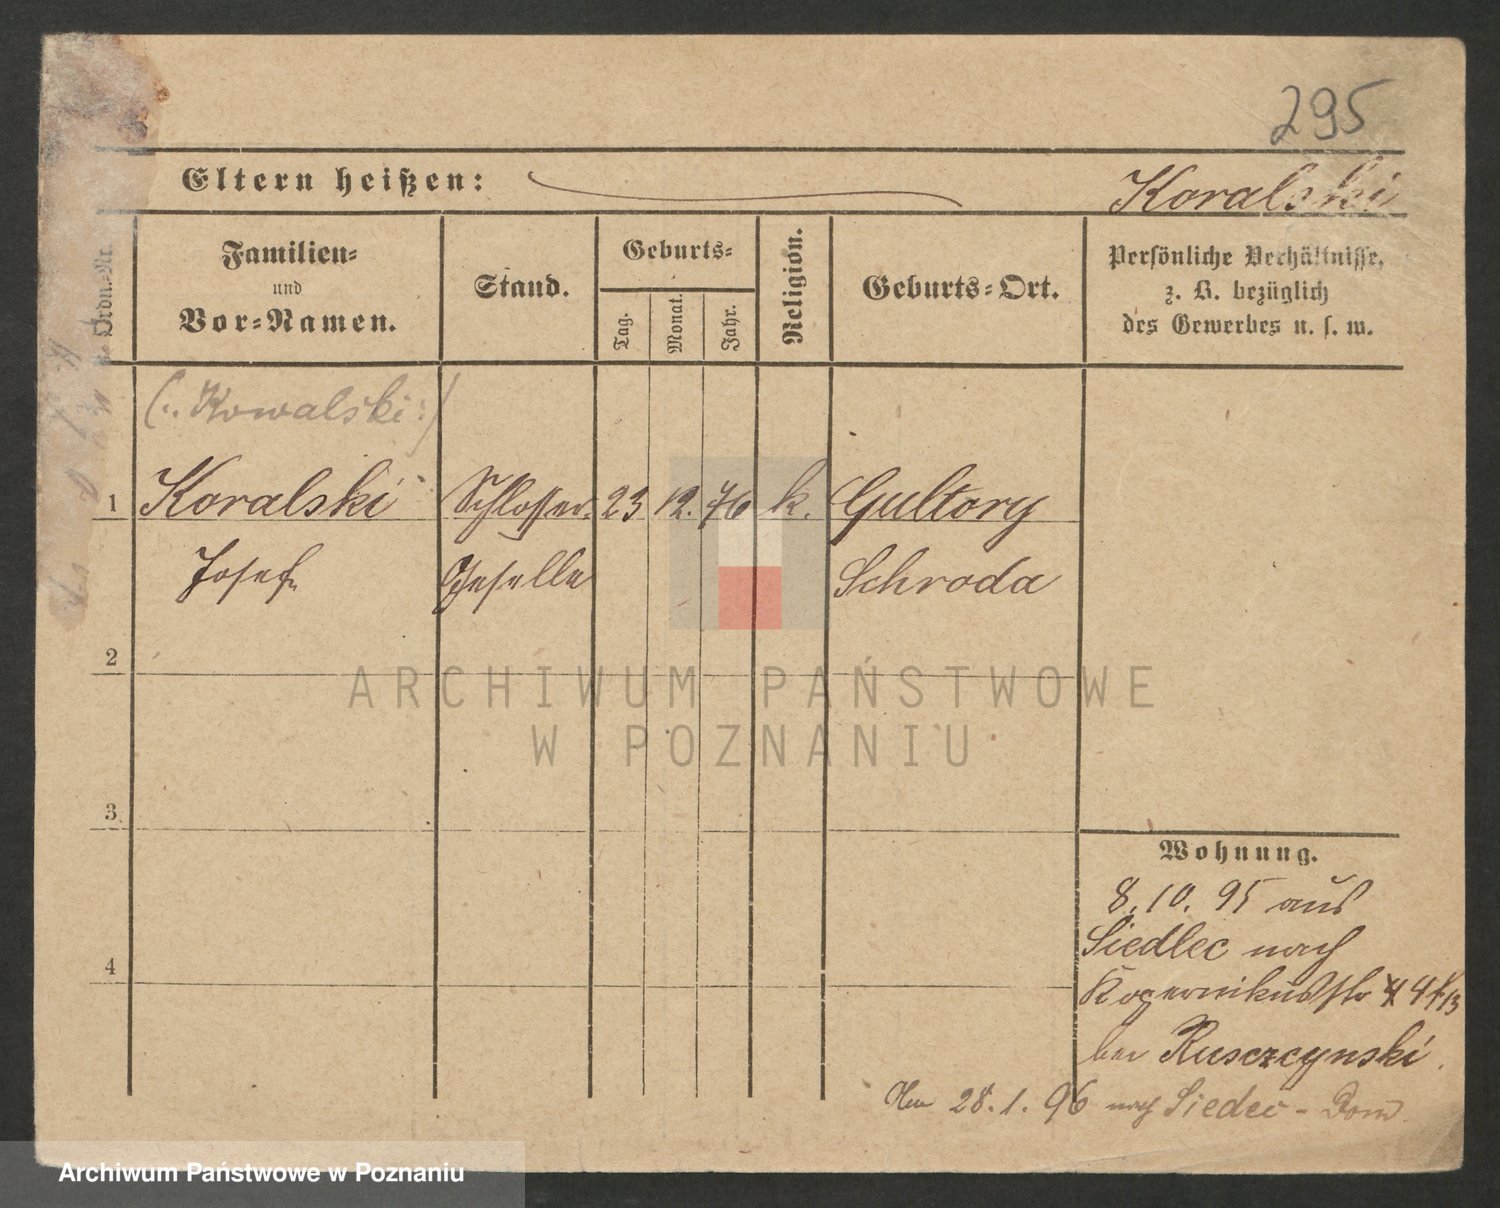 295
Eltern heißen: Koralski
Ordn.-Nr.
Familien-
und
Vor-Namen.
Stand.
Geburts-
Tag.
Monat.
Jahr.
Religion.
Geburts-Ort.
Persönliche Verhältnisse,
z. B. bezüglich
des Gewerbes u. s. w.
(:. Kowalski :)
1 Koralski Schlosser. 23 12. 76 k. Gultory
Josef Geselle Schroda
2
ARCHIWUM PAŃSTWOWE
W POZNANIU
3
Wohnung.
8. 10. 95 aus
Siedlec nach
4
Kopernikusstr
bei Rusczcynski.
28. 1. 96 nach Siedec - Dom.
Archiwum Państwowe w Poznaniu